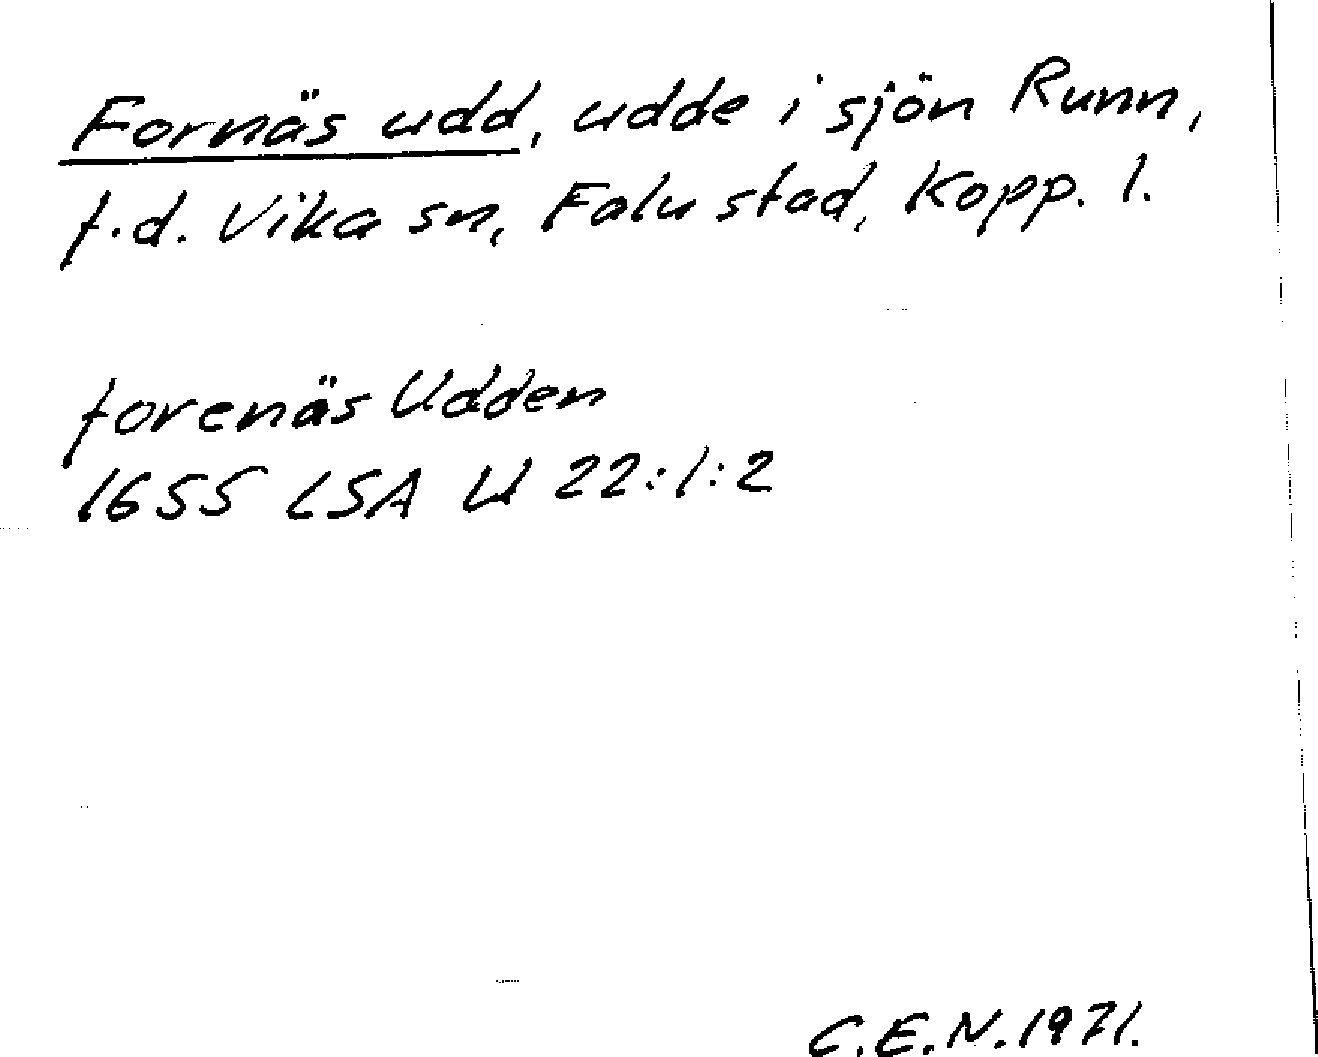 Fornäs udd, udde i sjön Runn,
f.d. Vika sn, Falu stad, Kopp. l.
forenäs Udden
1655 LSA U 22:1:2
C.E.N. 1971.